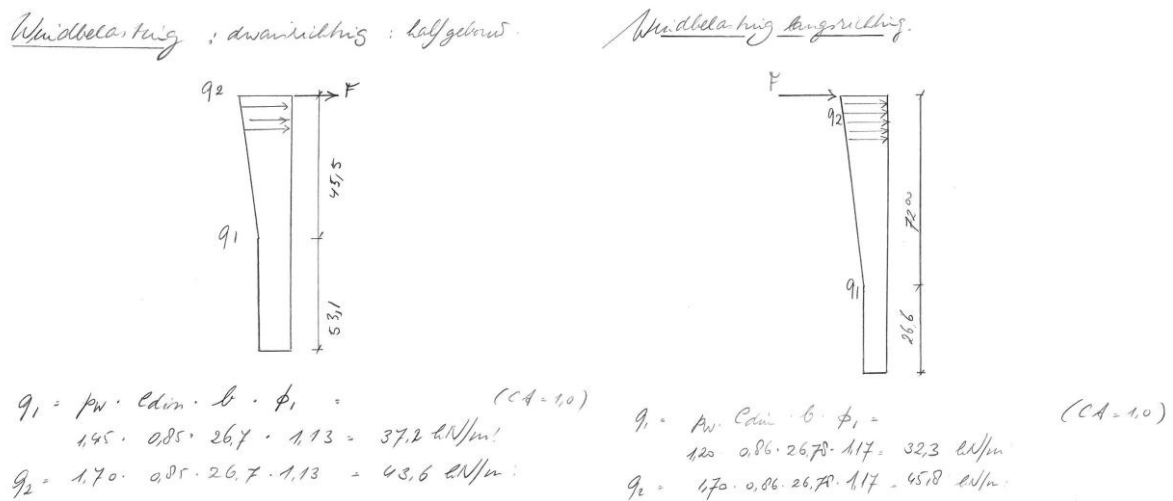 Windbelasting : dwarsrichting : half gebouw.
q2
F
45,5
q1
53,1
q1 = pw · Cdim · b · ϕ1 = (CA = 1,0)
1,45 · 0,85 · 26,7 · 1,13 = 37,2 kN/m'
q2 = 1,70 · 0,85 · 26,7 · 1,13 = 43,6 kN/m'
Windbelasting langsrichting.
F
q2
72,00
q1
26,6
q1 = pw · Cdim · b · ϕ1 = (CA = 1,0)
1,20 · 0,86 · 26,78 · 1,17 = 32,3 kN/m
q2 = 1,70 · 0,86 · 26,78 · 1,17 = 45,8 kN/m